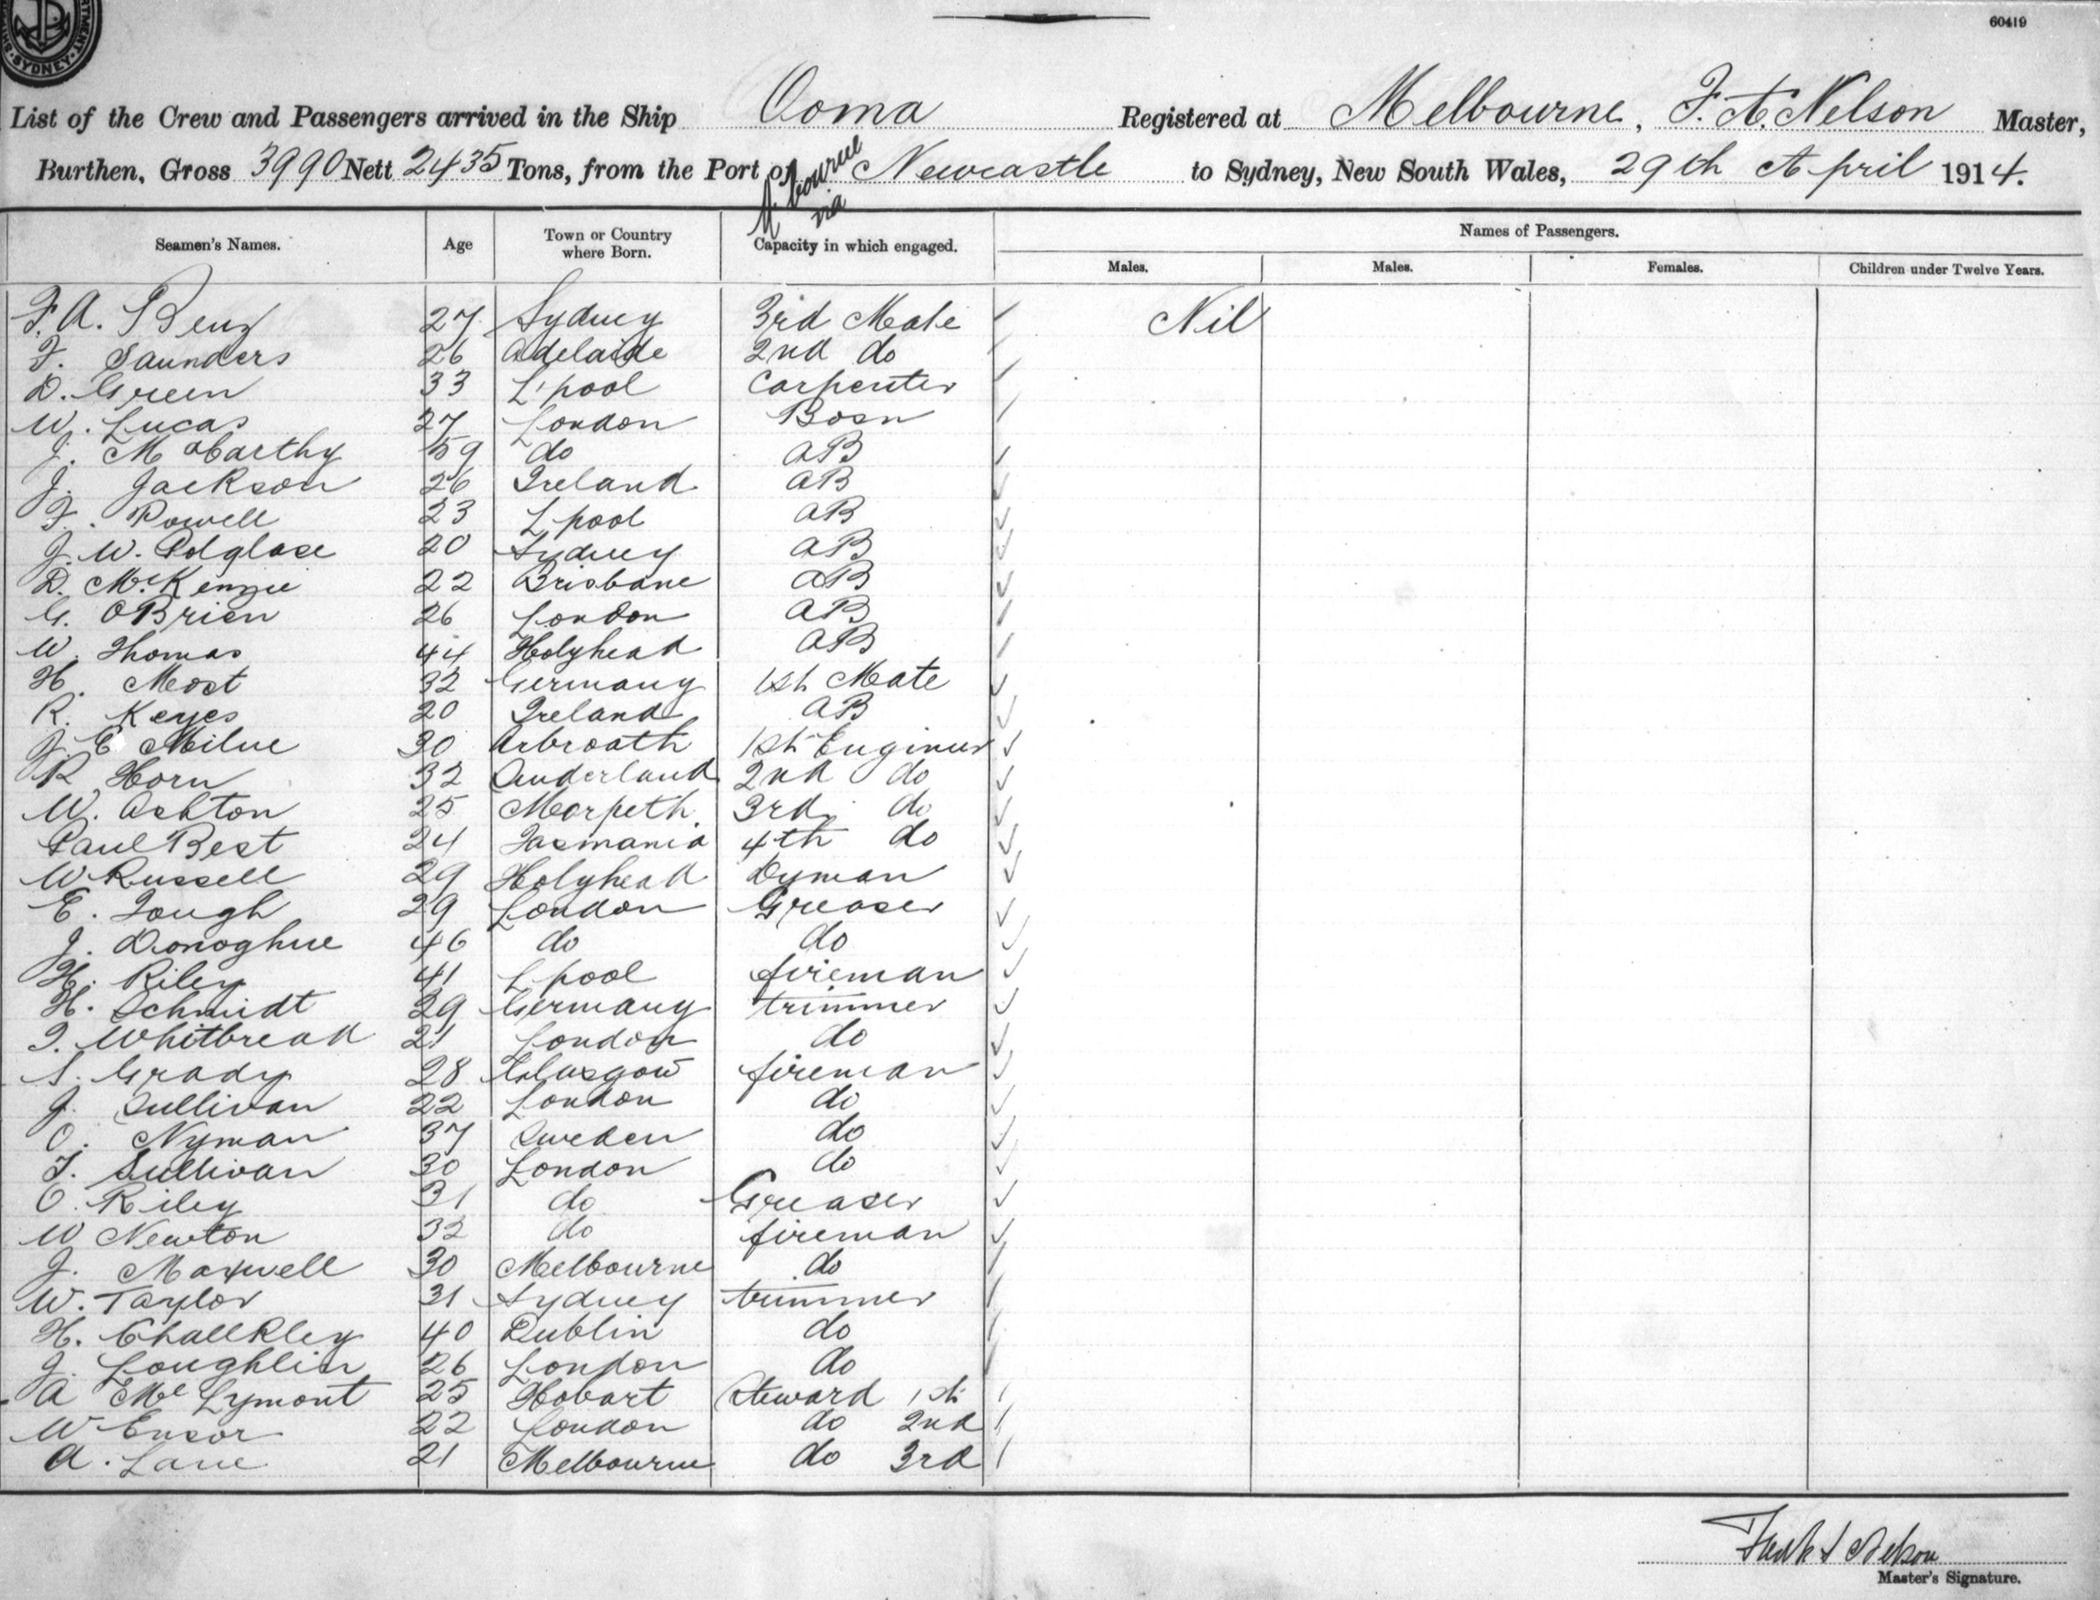 60419
SYDNEY
List of the Crew and Passengers arrived in the Ship Ooma Registered at Melbourne, F. A. Nelson Master,
Burthen, Gross 3990 Nett 2435 Tons, from the Port of M.bourne via Newcastle to Sydney, New South Wales, 29th April 1914.
Seamen's Names. Age Town or Country where Born. Capacity in which engaged. Names of Passengers.
Males. Males. Females. Children under Twelve Years.
F. A. Benz 27 Sydney 3rd Mate Nil
F. Saunders 26 Adelaide 2nd do
D. Green 33 L'pool Carpenter
W. Lucas 27 London Bosn
J. McCarthy 59 do AB
J. Jackson 26 Ireland AB
F. Powell 23 L'pool AB
J. W. Polglase 20 Sydney AB
D. McKenzie 22 Brisbane AB
G. OBrien 26 London AB
W. Thomas 44 Holyhead AB
H. Most 32 Germany 1st Mate
R. Keyes 20 Ireland AB
J. E Milne 30 Arbroath 1st Engineer
R Horn 32 Sunderland 2nd do
W. Ashton 25 Morpeth 3rd do
Paul Best 24 Tasmania 4th do
W Russell 29 Holyhead Dyman
E. Tough 29 London Greaser
J. Donoghue 46 do do
H. Riley 41 L'pool fireman
H. Schmidt 29 Germany trimmer
T. Whitbread 21 London do
S. Grady 28 Glasgow fireman
J. Sullivan 22 London do
O. Nyman 37 Sweden do
T. Sullivan 30 London do
O. Riley 31 do Greaser
W Newton 32 do fireman
J. Maxwell 30 Melbourne do
W. Taylor 31 Sydney trimmer
H. Challkley 40 Dublin do
J. Loughlin 26 London do
A McLymont 25 Hobart Steward 1st
W Ensor 22 London do 2nd
A. Lane 21 Melbourne do 3rd
Nelson
Master's Signature.